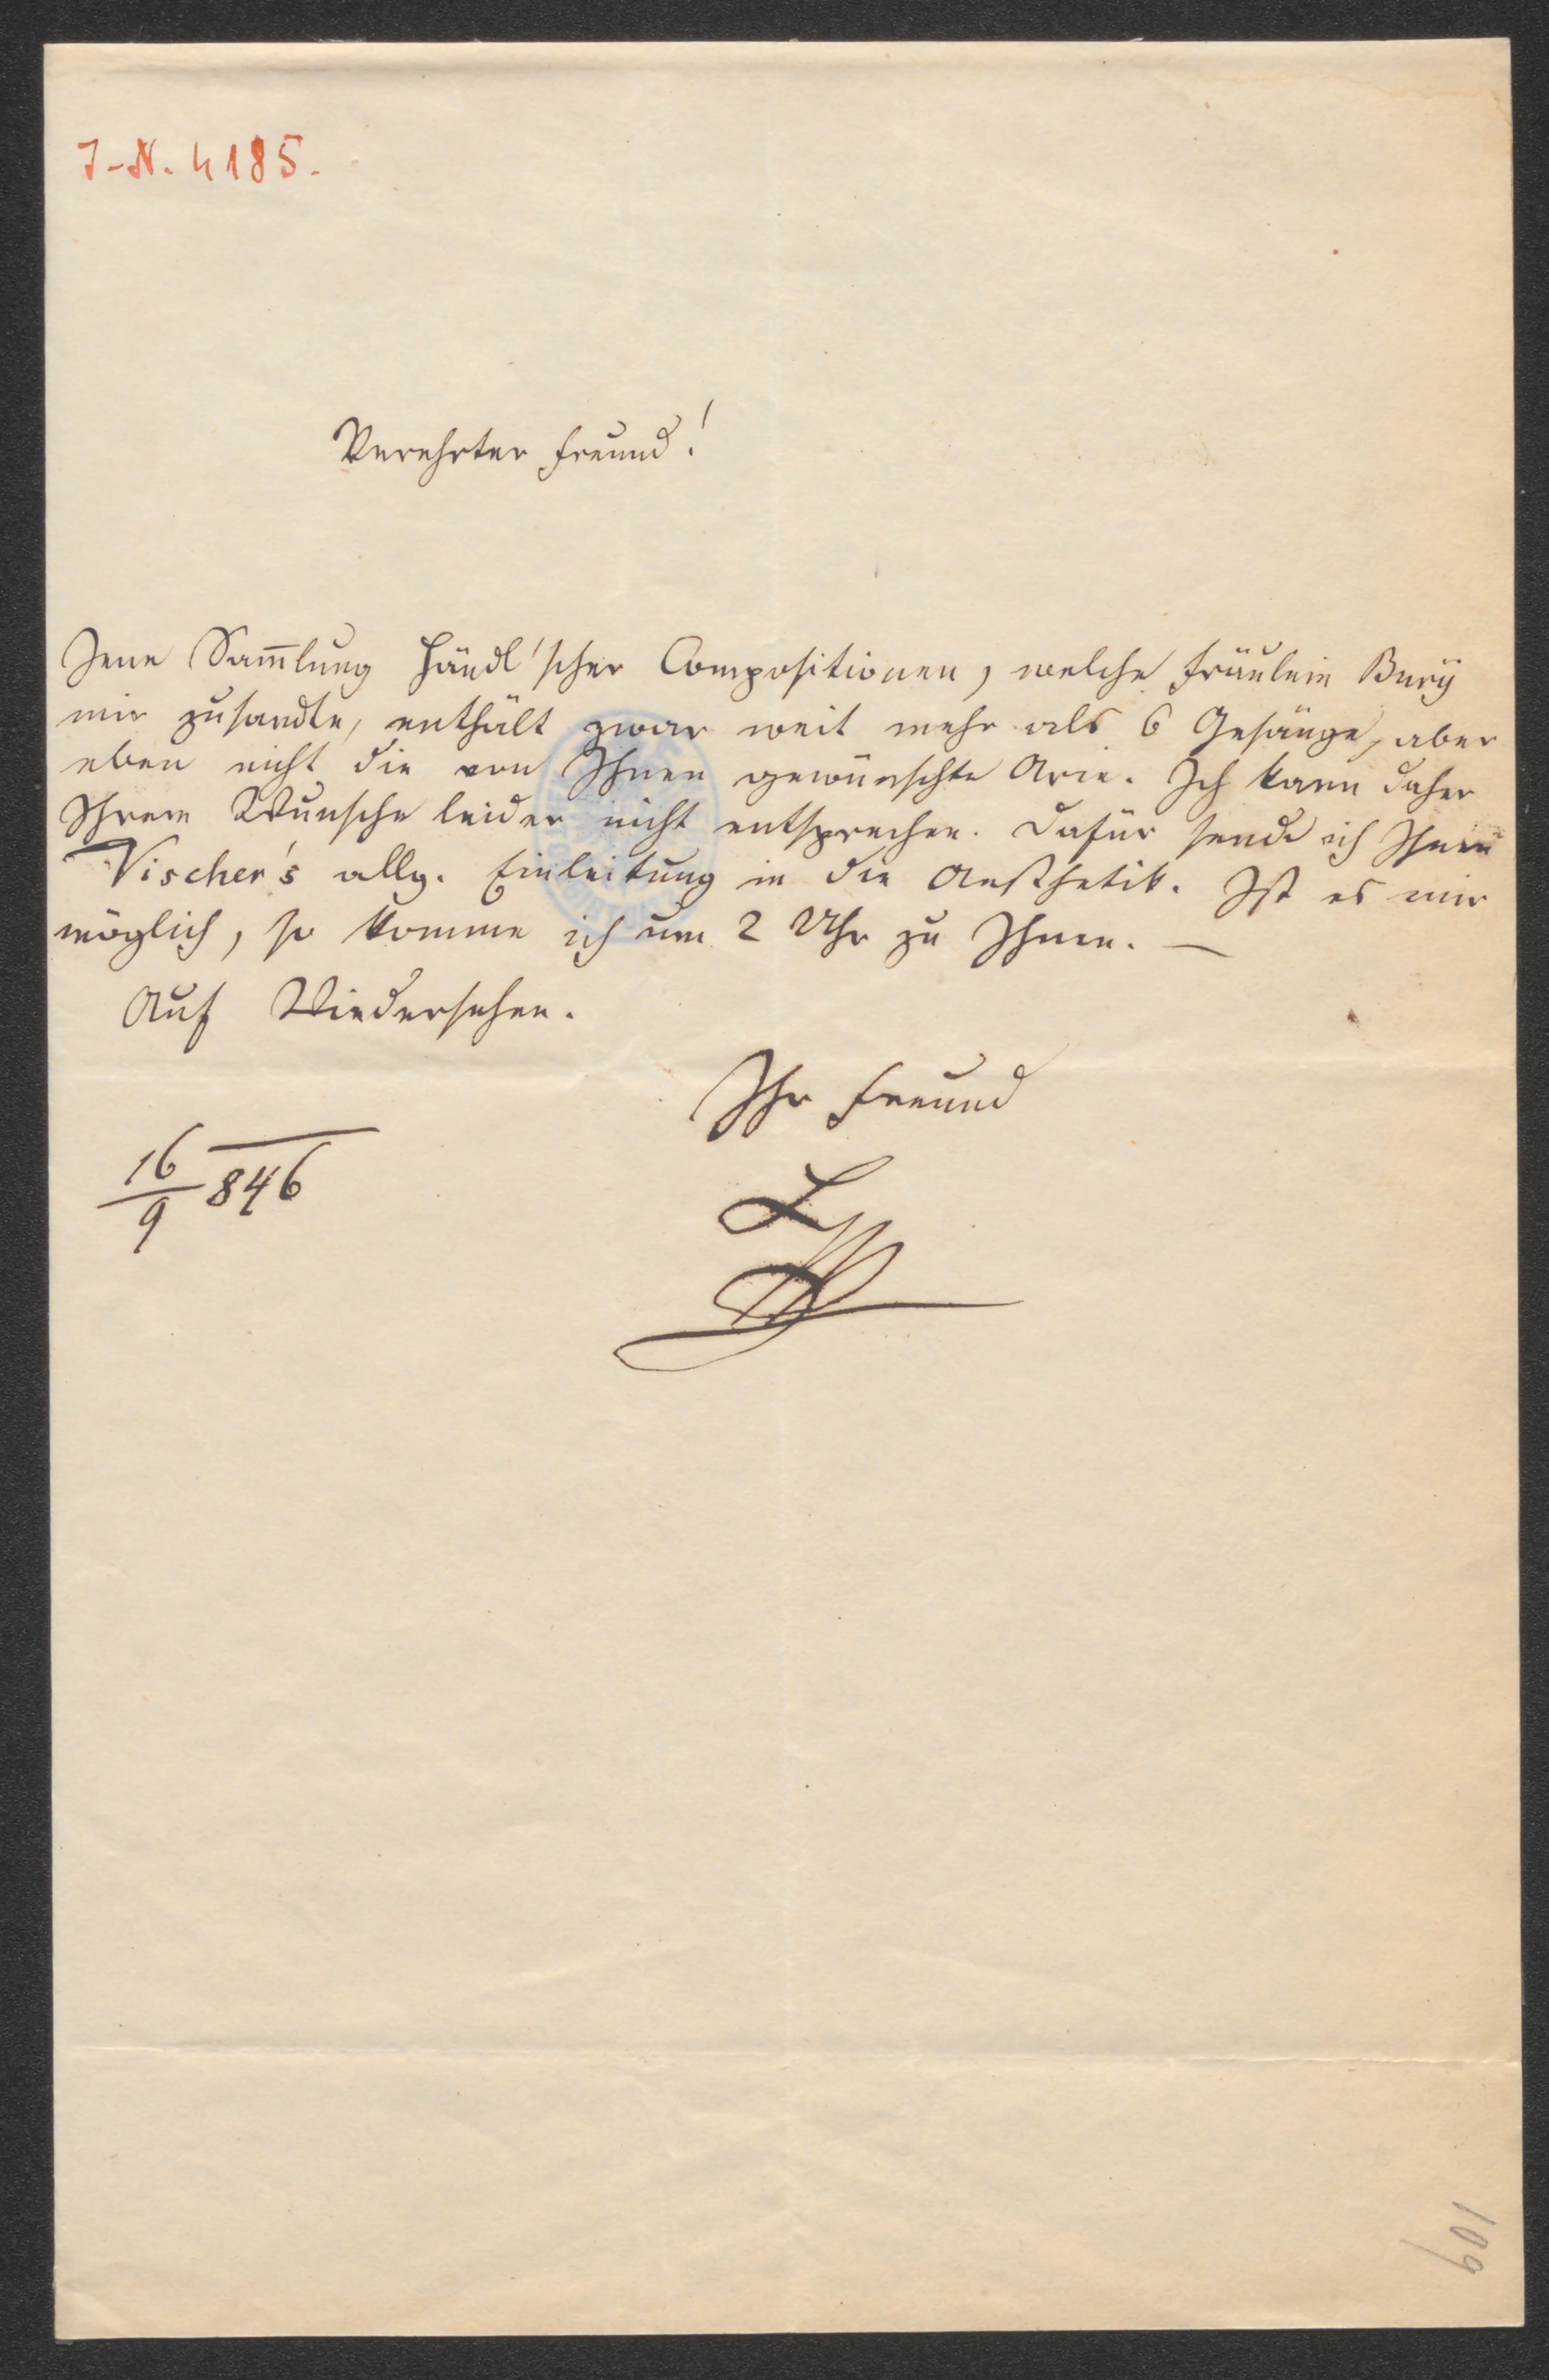 J-N. 4185.
Verehrter Freund!
Jene Sam̅lung Händl'scher Compositionen, welche Fräulein Bury
mir zusandte, enthält zwar weit mehr als 6 Gesänge, aber
eben nicht die von Ihnen gewünschte Arie. Ich kann daher
Ihrem Wunsche leider nicht entsprechen. Dafür sende ich Ihnen
Vischer's allg. Einleitung in die Aesthetik. Ist es mir
möglich, so komme ich um 2 Uhr zu Ihnen. —
Auf Wiedersehen.
Ihr Freund
16/9 846
109